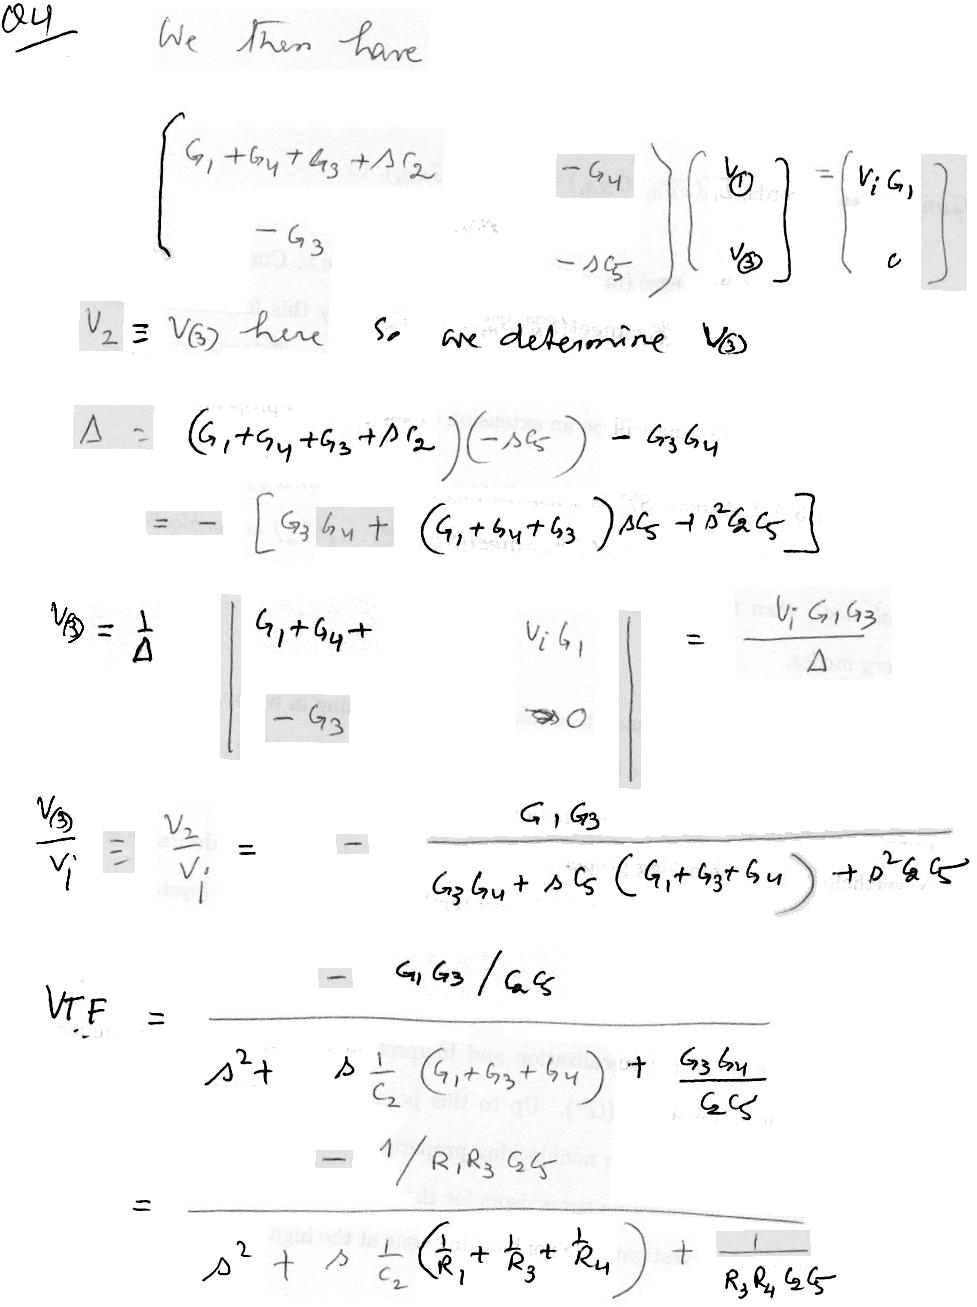 Q4
We then have
[ G₁ + G₄ + G₃ + sC₂   - G₄ ] [ V① ] = [ Vᵢ G₁ ]
[ - G₃   - sC₅ ] [ V③ ]   [ 0 ]
V₂ ≡ V③ here So we determine V③
Δ = (G₁ + G₄ + G₃ + sC₂)(- sC₅) - G₃G₄
= - [G₃G₄ + (G₁ + G₄ + G₃) sC₅ + s²C₂C₅]
V③ = 1/Δ | G₁ + G₄ +   Vᵢ G₁ | = Vᵢ G₁G₃ / Δ
| - G₃   0 |
V③/Vᵢ ≡ V₂/Vᵢ = - G₁G₃ / (G₃G₄ + sC₅ (G₁ + G₃ + G₄) + s²C₂C₅)
VTF = - G₁G₃/C₂C₅ / (s² + s 1/C₂ (G₁ + G₃ + G₄) + G₃G₄/C₂C₅)
= - 1/R₁R₃C₂C₅ / (s² + s 1/C₂ (1/R₁ + 1/R₃ + 1/R₄) + 1/R₃R₄C₂C₅)